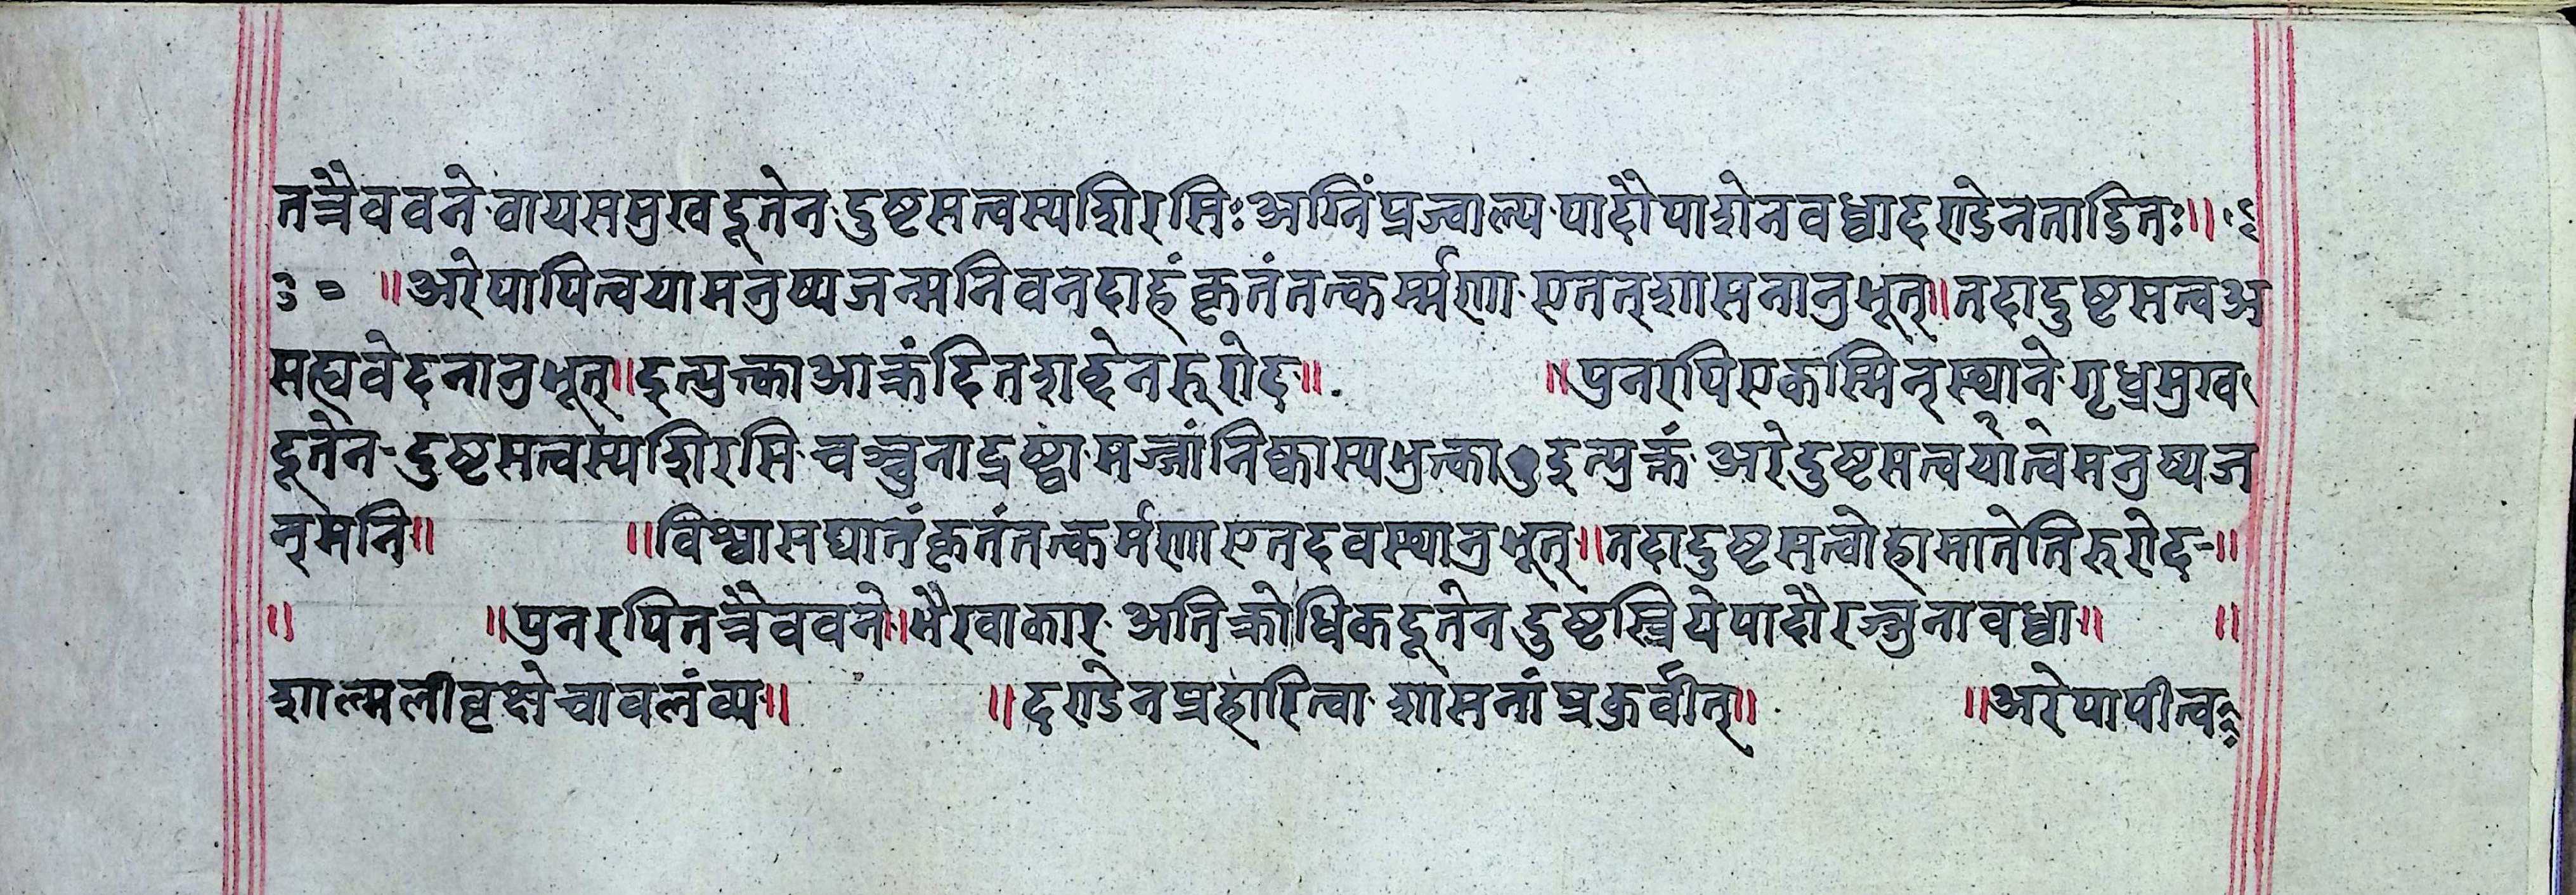 तत्रैववने वायसमुखदूतेन दुष्टसत्वस्यशिरसिः अग्निंप्रज्वाल्य पादौपाशेनवध्वादण्डेनताडितः॥
३० ॥अरेपापित्वयामनुष्यजन्मनिवनदाहंकृतंतत्कर्म्मणा एतत्शासनानुभूत्॥तदादुष्टसत्वअ
सह्यवेदनानुभूत्॥इत्युक्त्काआक्रंदितशब्देनरुरोद॥ ॥पुनरपिएकस्मिन्स्थाने गृध्रमुख
दूतेन दुष्टसत्वस्यशिरसि चञ्चुनाद्रष्ट्वा मज्जांनिष्कास्यभुत्का इत्युक्तं अरेदुष्टसत्वयात्वेमनुष्यज
न्मनि॥ ॥विश्वासघातंकृतंतत्कर्मणाएतदवस्थानुभूत्॥तदादुष्टसत्वोहामातेतिरुरोद॥
॥ ॥पुनरपितत्रैववने॥भैरवाकार अतिक्रोधिकदूतेनदुष्टस्त्रियेपादौरज्जुनावध्वा॥ ॥
शाल्मलीवृक्षेचावलंव्य॥ ॥दण्डेनप्रहारित्वा शासनांप्रकुर्वीत्॥ ॥अरेपापीत्व